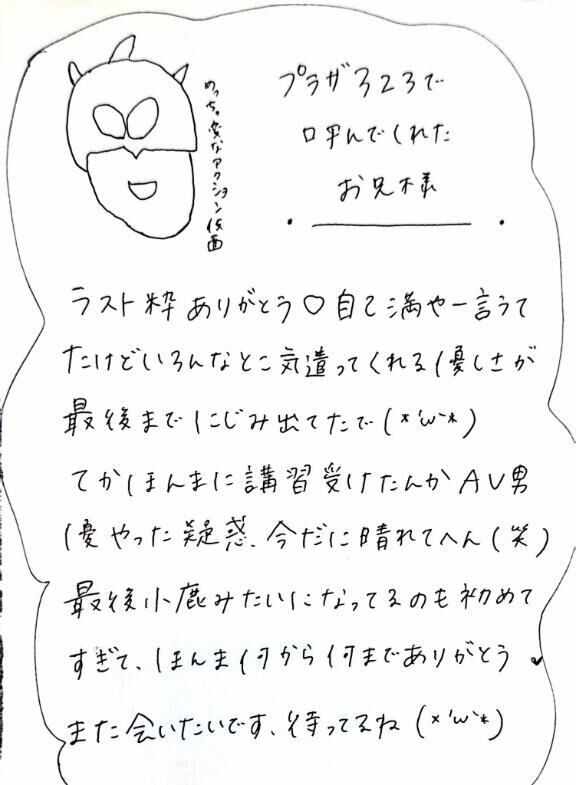 めっちゃ変なアクション仮面
プラザ323で
呼んでくれた
お兄様
ラスト枠ありがとう♡自己満や一言うて
たけどいろんなとこ気遣ってくれる優しさが
最後までにじみ出てたで(*'ω'*)
てかほんまに講習受けたんかAV男
優やった疑惑、今だに晴れてへん(笑)
最後小鹿みたいになってるのも初めて
すぎて、ほんま何から何までありがとう
また会いたいです、待ってるね(*'ω'*)